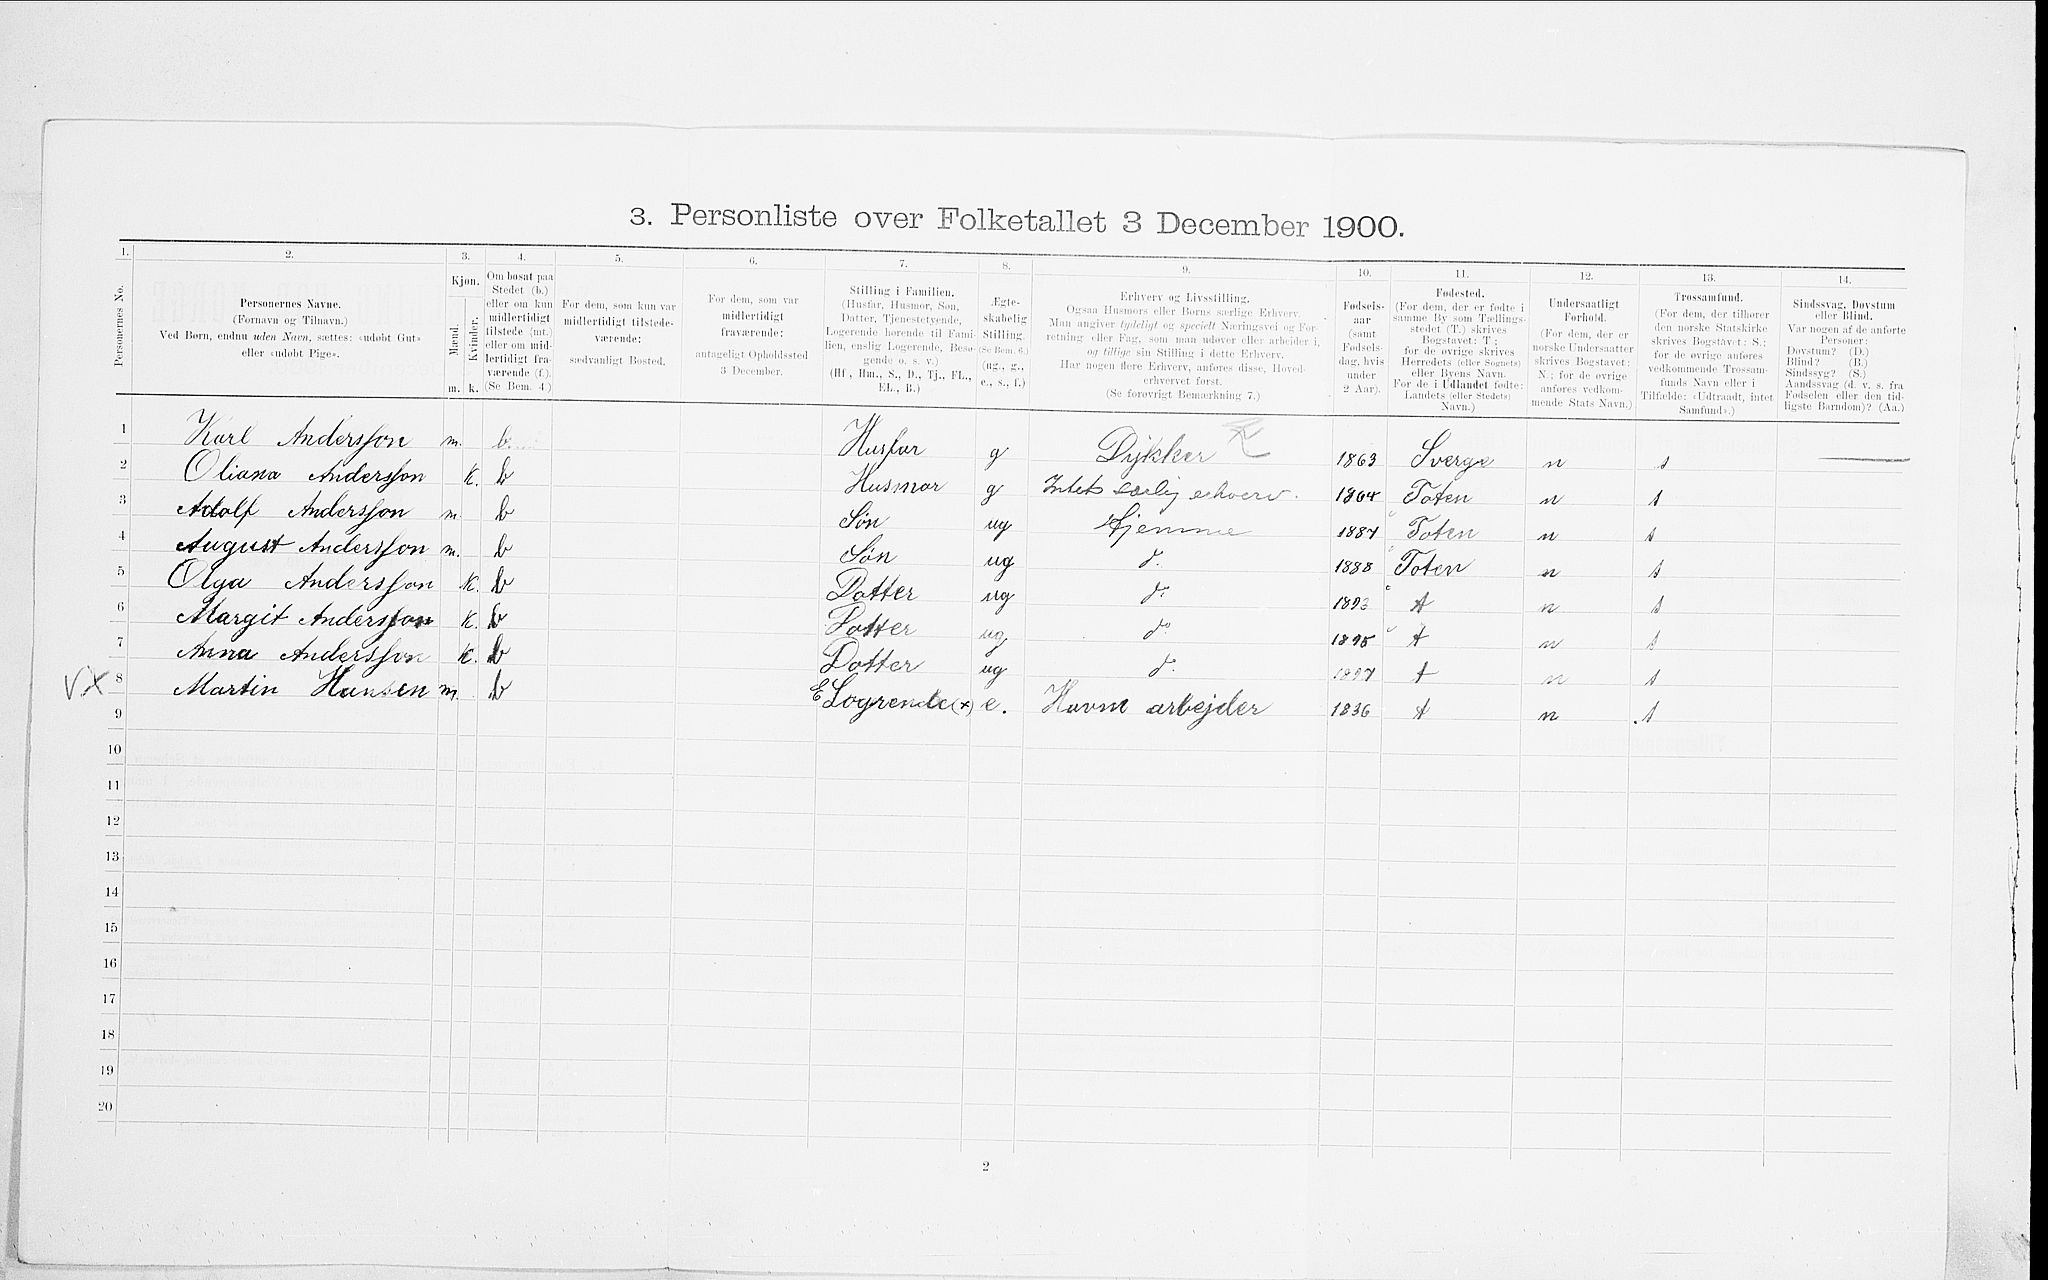 3. Personliste over Folketallet 3 December 1900.
1. 2. 3. 4. 5. 6. 7. 8. 9. 10. 11. 12. 13. 14.
Personernes No.
Personernes Navne.
(Fornavn og Tilnavn.)
Ved Børn, endnu uden Navn, sættes: «udøbt Gut»
eller «udøbt Pige».
Kjøn.
Mænd.
Kvinder.
m. k.
Om bosat paa
Stedet (b.)
eller om kun
midlertidigt
tilstede (mt.)
eller om mid-
lertidigt fra-
værende (f.).
(Se Bem. 4.)
For dem, som kun var
midlertidigt tilstede-
værende:
sædvanligt Bosted.
For dem, som var
midlertidigt
fraværende:
antageligt Opholdssted
3 December.
Stilling i Familien.
(Husfar, Husmor, Søn,
Datter, Tjenestetyende,
Logerende hørende til Fami-
lien, enslig Logerende, Besø-
gende o. s. v.)
(Hf., Hm., S., D., Tj., FL.,
EL., B.)
Ægte-
skabelig
Stilling.
(Se Bem. 6.)
(ug., g.,
e., s., f.)
Erhverv og Livsstilling.
Ogsaa Husmors eller Børns særlige Erhverv.
Man angiver tydeligt og specielt Næringsvei og For-
retning eller Fag, som man udøver eller arbejder i,
og tillige sin Stilling i dette Erhverv.
Har nogen flere Erhverv, anføres disse, Hoved-
erhvervet først.
(Se forøvrigt Bemærkning 7.)
Fødsels-
aar
(samt
Fødsels-
dag, hvis
under
2 Aar).
Fødested.
(For dem, der er fødte i
samme By som Tællings-
stedet (T.) skrives
Bogstavet: T;
for de øvrige skrives
Herredets (eller Sognets)
eller Byens Navn.
For de i Udlandet fødte:
Landets (eller Stedets)
Navn.)
Undersaatligt
Forhold.
(For dem, der er
norske Undersaatter
skrives Bogstavet:
N.; for de øvrige
anføres vedkom-
mende Stats Navn.)
Trossamfund.
(For dem, der tilhører
den norske Statskirke
skrives Bogstavet: S.;
for de øvrige anføres
vedkommende Trossam-
funds Navn eller i
Tilfælde: «Udtraadt, intet
Samfund».)
Sindssvag, Døvstum
eller Blind.
Var nogen af de anførte
Personer:
Døvstum? (D.)
Blind? (B.)
Sindssyg? (S.)
Aandssvag (d. v. s. fra
Fødselen eller den tid-
ligste Barndom)? (Aa.)
1 Karl Andersson m. b. Husfar g Dykker 1863 Sverge n s
2 Oliana Andersson K. b Husmor g Intet særlig erhverv. 1864 Toten n s
3 Adolf Andersson m b Søn ug Hjemme 1887 Toten n s
4 August Andersson m. b Søn ug d. 1888 Toten n s
5 Olga Andersson K. b Datter ug d: 1893 t n s
6 Margit Andersson K. b Datter ug do 1895 t n s
7 Anna Andersson K. b Datter ug d. 1897 t n s
8 Martin Hansen m. b E Logrende (x) e. Havm arbejder 1836 t n s
9
10
11
12
13
14
15
16
17
18
19
20
2